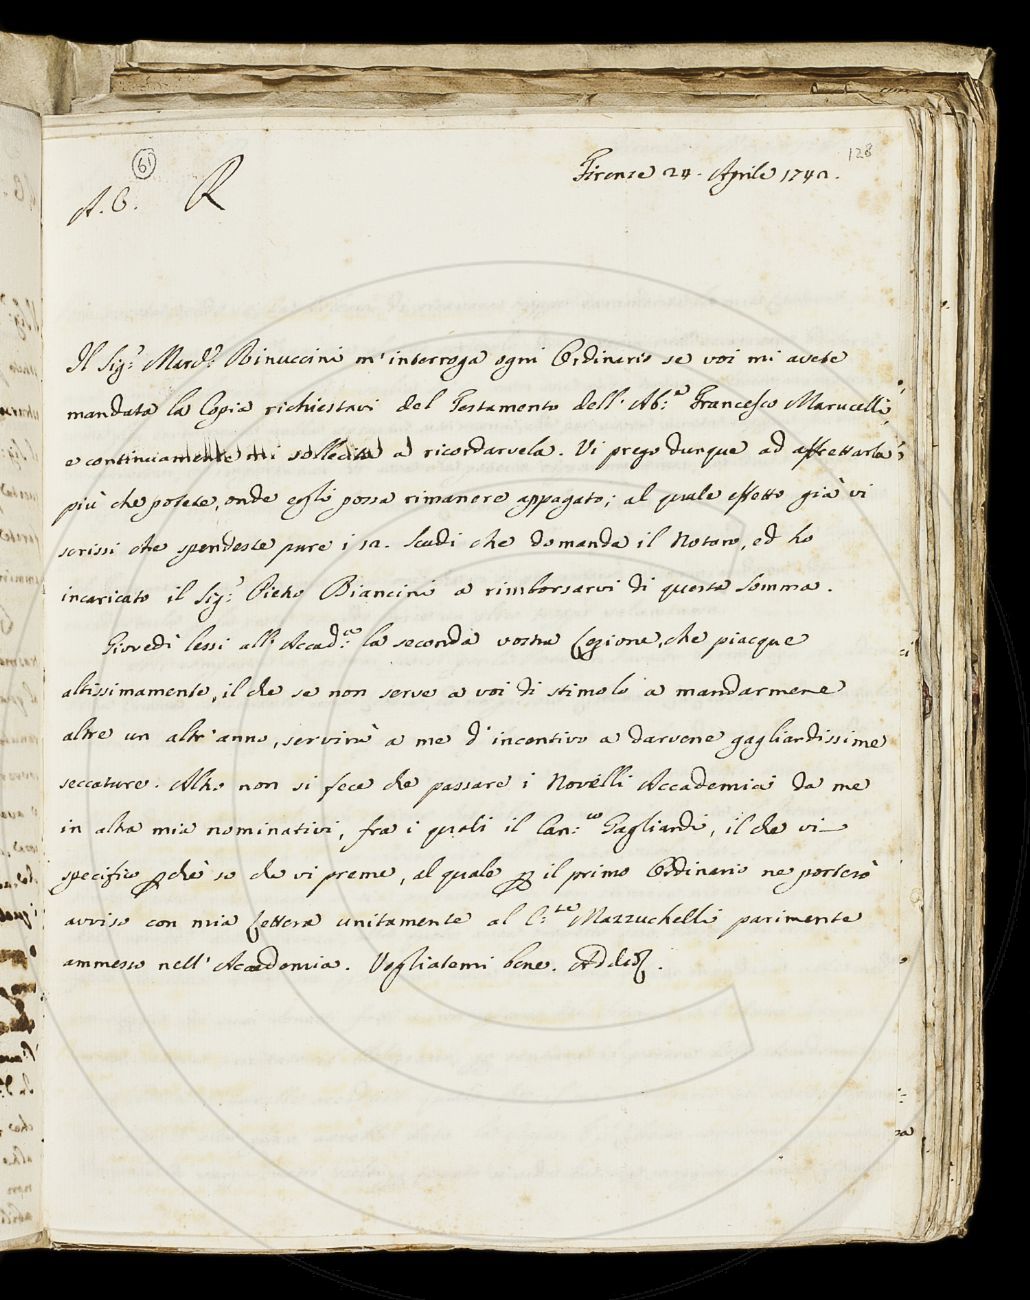 128
61
Firenze 24. Aprile 1742.
A. C. R
Il Sig.r Marc.e Rinuccini m'interroga ogni Ordinario se voi mi avete
mandata la Copia richiestavi del Testamento dell'Ab.e Francesco Marucelli,
e continuamente mi sollecita a ricordarvela. Vi prego dunque ad affrettarla
più che potete, onde egli possa rimanere appagato; al quale effetto già vi
scrissi che spendeste pure i 12. Scudi che domanda il Notaro, ed ho
incaricato il Sig.r Pietro Biancini a rimborsarvi di questa somma.
Giovedì lessi all'Accad.a la seconda vostra Lezione, che piacque
altissimamente, il che se non serve a voi di stimolo a mandarmene
altre un altr'anno, servirà a me d'incentivo a darvene gagliardissime
seccature. Altro non si fece che passare i Novelli Accademici da me
in altra mia nominativi, fra i quali il Can.co Gagliardi, il che vi
specifico perchè so che vi preme, al quale per il primo Ordinario ne porterò
avviso con mia Lettera unitamente al C.te Mazzuchelli parimente
ammesso nell'Accademia. Vogliatemi bene. Addio.